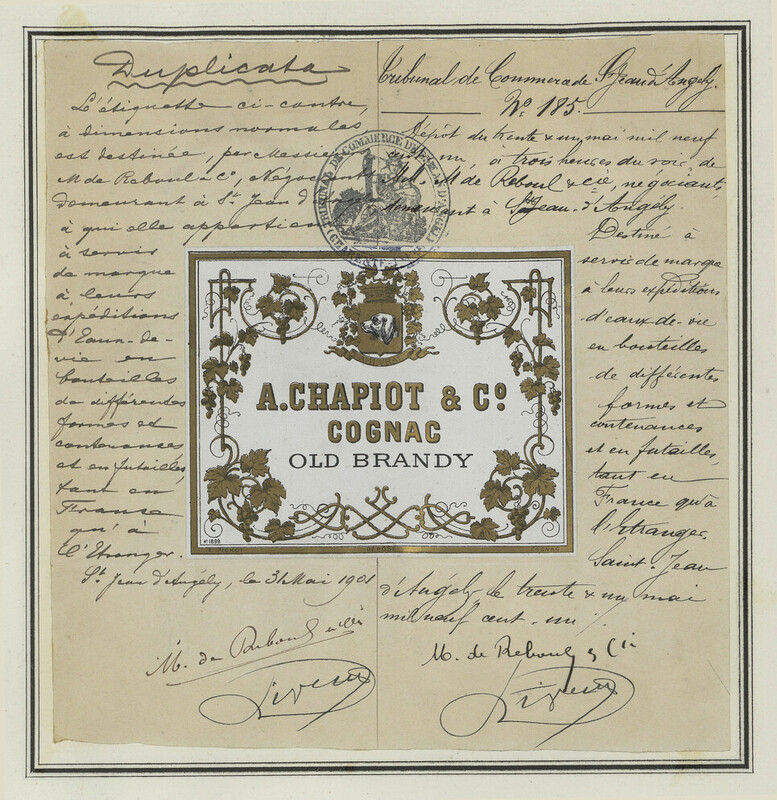 Duplicata
L'étiquette ci-contre,
à dimensions normales
est destinée, par Messieurs
M de Reboul & Co, Négociants
demeurant à St Jean d'
à qui elle appartient
à servir
de marque
à leurs
expéditions
d'Eaux-de-
vie en
bouteilles
de différentes
formes et
contenances
et en futailles,
tant en
France
qu'à
l'Etranger.
St Jean d'Angély, le 31 Mai 1901
M. de Reboul
Tribunal de Commerce de St Jean d'Angely.
No 185.
Dépôt du trente & un mai mil neuf
cent un, à trois heures du soir, de
MM. M de Reboul & cie, négociants
demeurant à St Jean-d'Angely.
Destiné à
servir de marque
à leurs expéditions
d'eaux-de-vie
en bouteilles
de différentes
formes et
contenances
et en futailles,
tant en
France qu'à
l'Etranger.
Saint-Jean
d'Angély le trente & un mai
mil neuf cent-un
M. de Reboul & Cie
TRIBUNAL DE COMMERCE DE ST JEAN D'ANGELY
A. CHAPIOT & Co
COGNAC
OLD BRANDY
No 1898